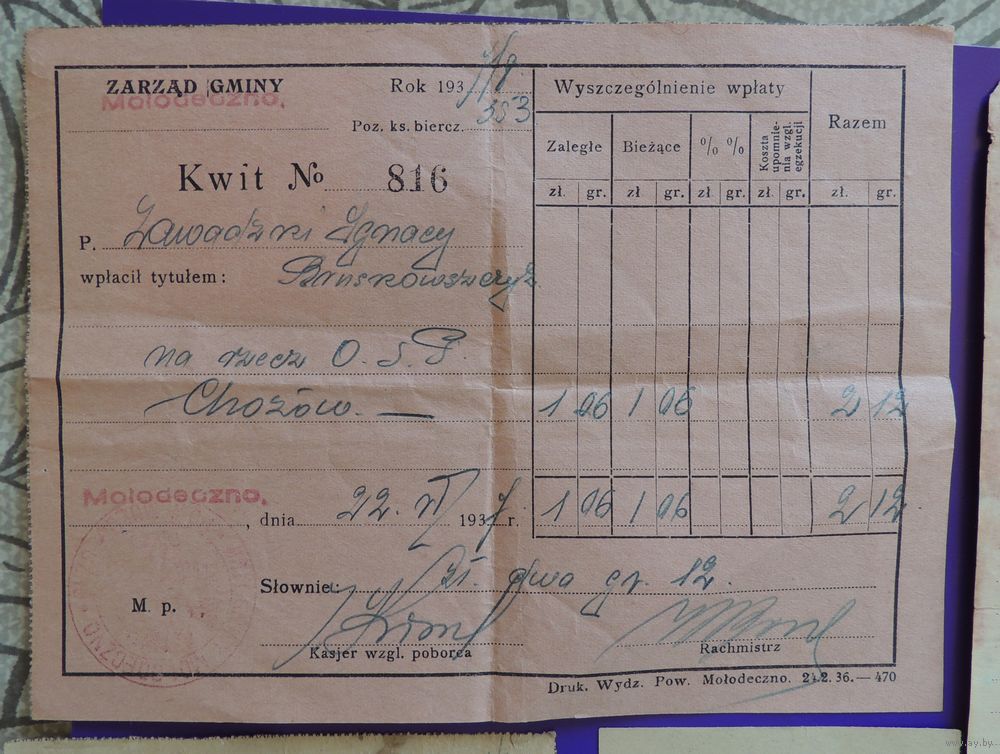 ZARZĄD GMINY
Mołodeczno.
Rok 1937/8
Poz. ks. biercz. 353
Kwit № 816
P. Zawadzki Ignacy
wpłacił tytułem:
na rzecz O. S. P.
Chożów. —
Wyszczególnienie wpłaty
Razem
Zaległe Bieżące % % Koszta upomnie-nia wzgl. egzekucji
zł. gr. zł gr. zł gr. zł gr. zł. gr.
1 06 1 06 2 12
Mołodeczno, dnia 22. VI 1937 r.
1 06 1 06 2 12
Słownie: Zł. dwa gr. 12.
M. p.
Kasjer wzgl. poborca
Rachmistrz
Druk. Wydz. Pow. Mołodeczno. 24.2. 36.—470
www.ay.by